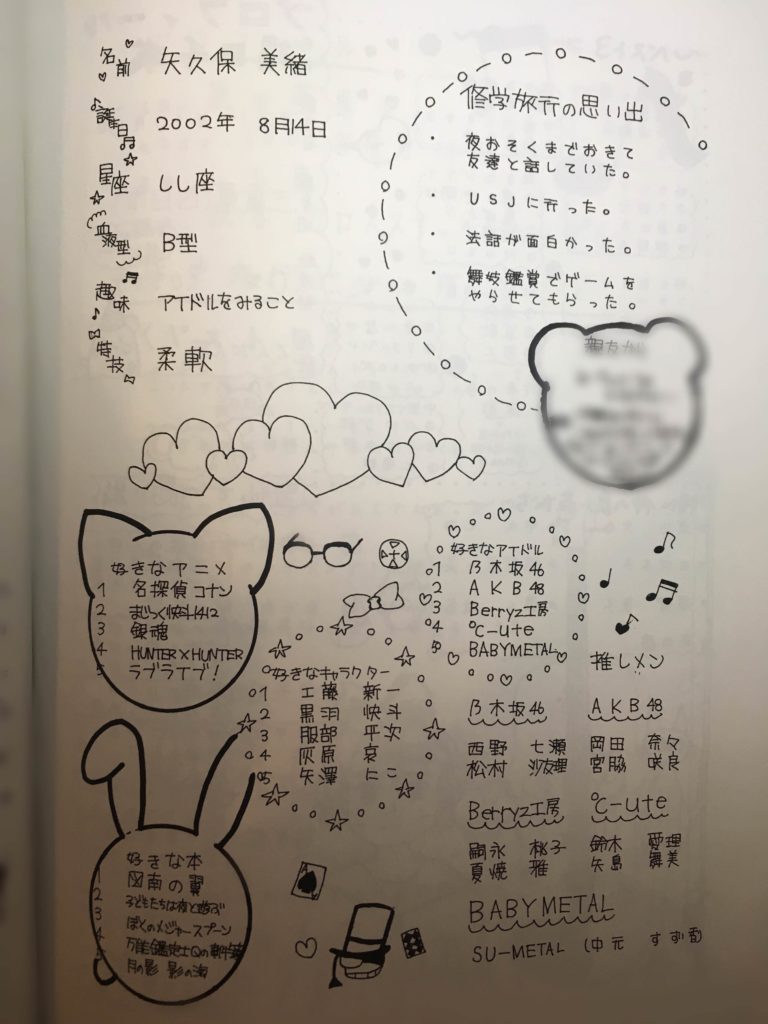 名前 矢久保 美緒
誕生日 2002年 8月14日
星座 しし座
血液型 B型
趣味 アイドルをみること
特技 柔軟
修学旅行の思い出
・ 夜おそくまでおきて
友達と話していた。
・ USJに行った。
・ 法話が面白かった。
・ 舞妓鑑賞でゲームを
やらせてもらった。
好きなアニメ
1 名探偵コナン
2 まじっく快斗1412
3 銀魂
4 HUNTER×HUNTER
5 ラブライブ!
好きなキャラクター
1 工藤 新一
2 黒羽 快斗
3 服部 平次
4 灰原 哀
5 矢澤 にこ
好きなアイドル
1 乃木坂46
2 AKB48
3 Berryz工房
4 ℃-ute
5 BABYMETAL
推しメン
乃木坂46
西野 七瀬
松村 沙友理
AKB48
岡田 奈々
宮脇 咲良
Berryz工房
嗣永 桃子
夏焼 雅
℃-ute
鈴木 愛理
矢島 舞美
BABYMETAL
SU-METAL (中元 すず香)
好きな本
1 図南の翼
2 子どもたちは夜と遊ぶ
3 ぼくのメジャースプーン
4 万能鑑定士Qの事件簿
5 月の影 影の海
A